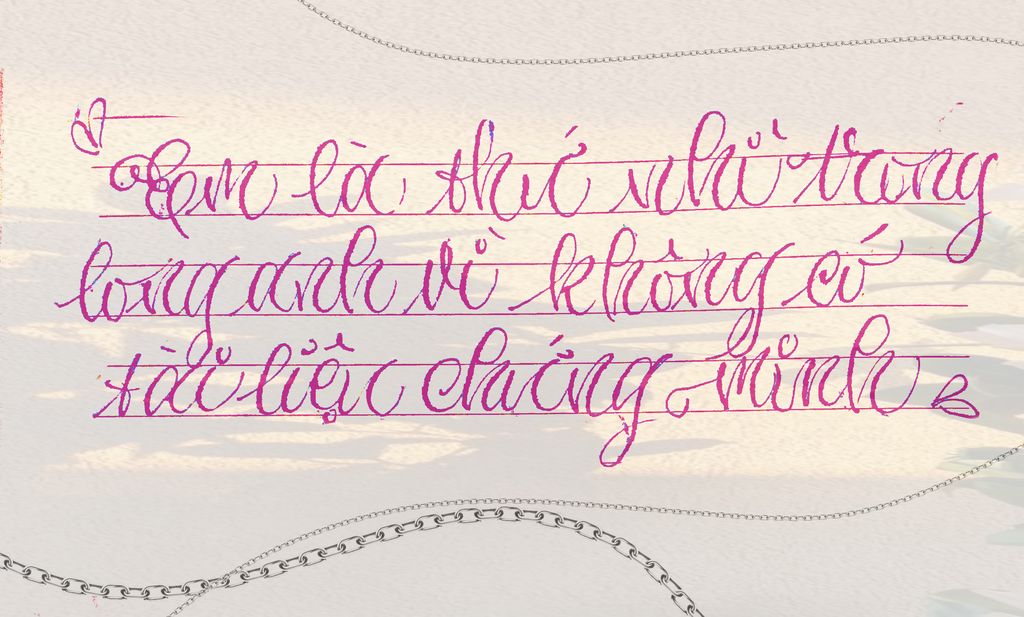 Em là thứ nhì trong
long anh vì không có
tài liệu chứng minh